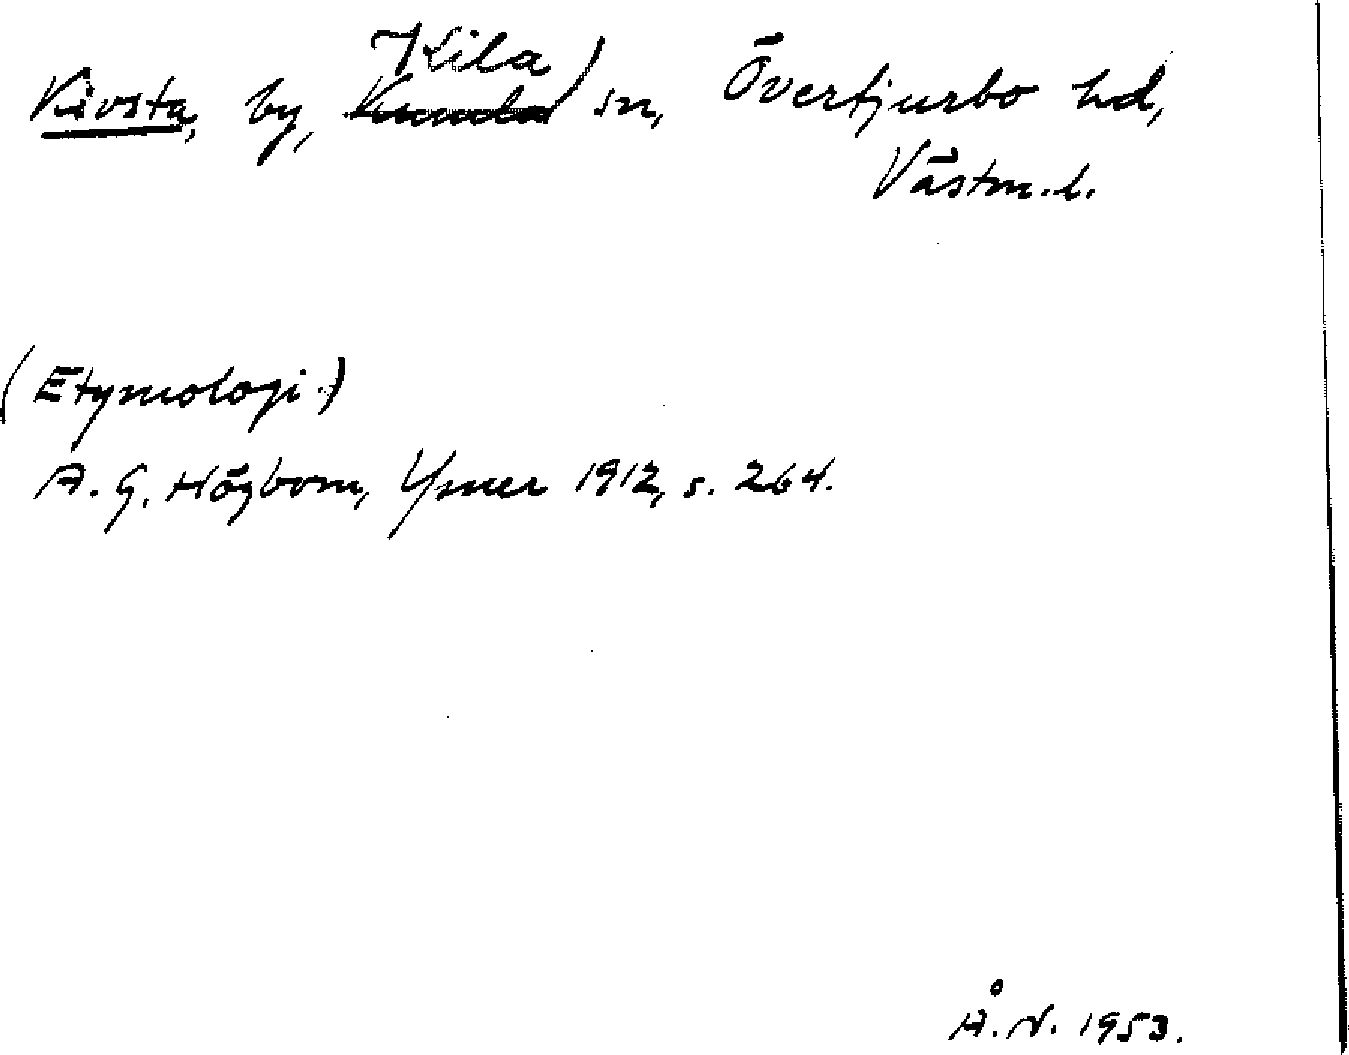 Kivsta, by, Kumla Kila) sn, Övertjurbo hd,
Västm. l.
(Etymologi.)
A. G. Högbom, Ymer 1912, s. 264.
Å. N. 1953.